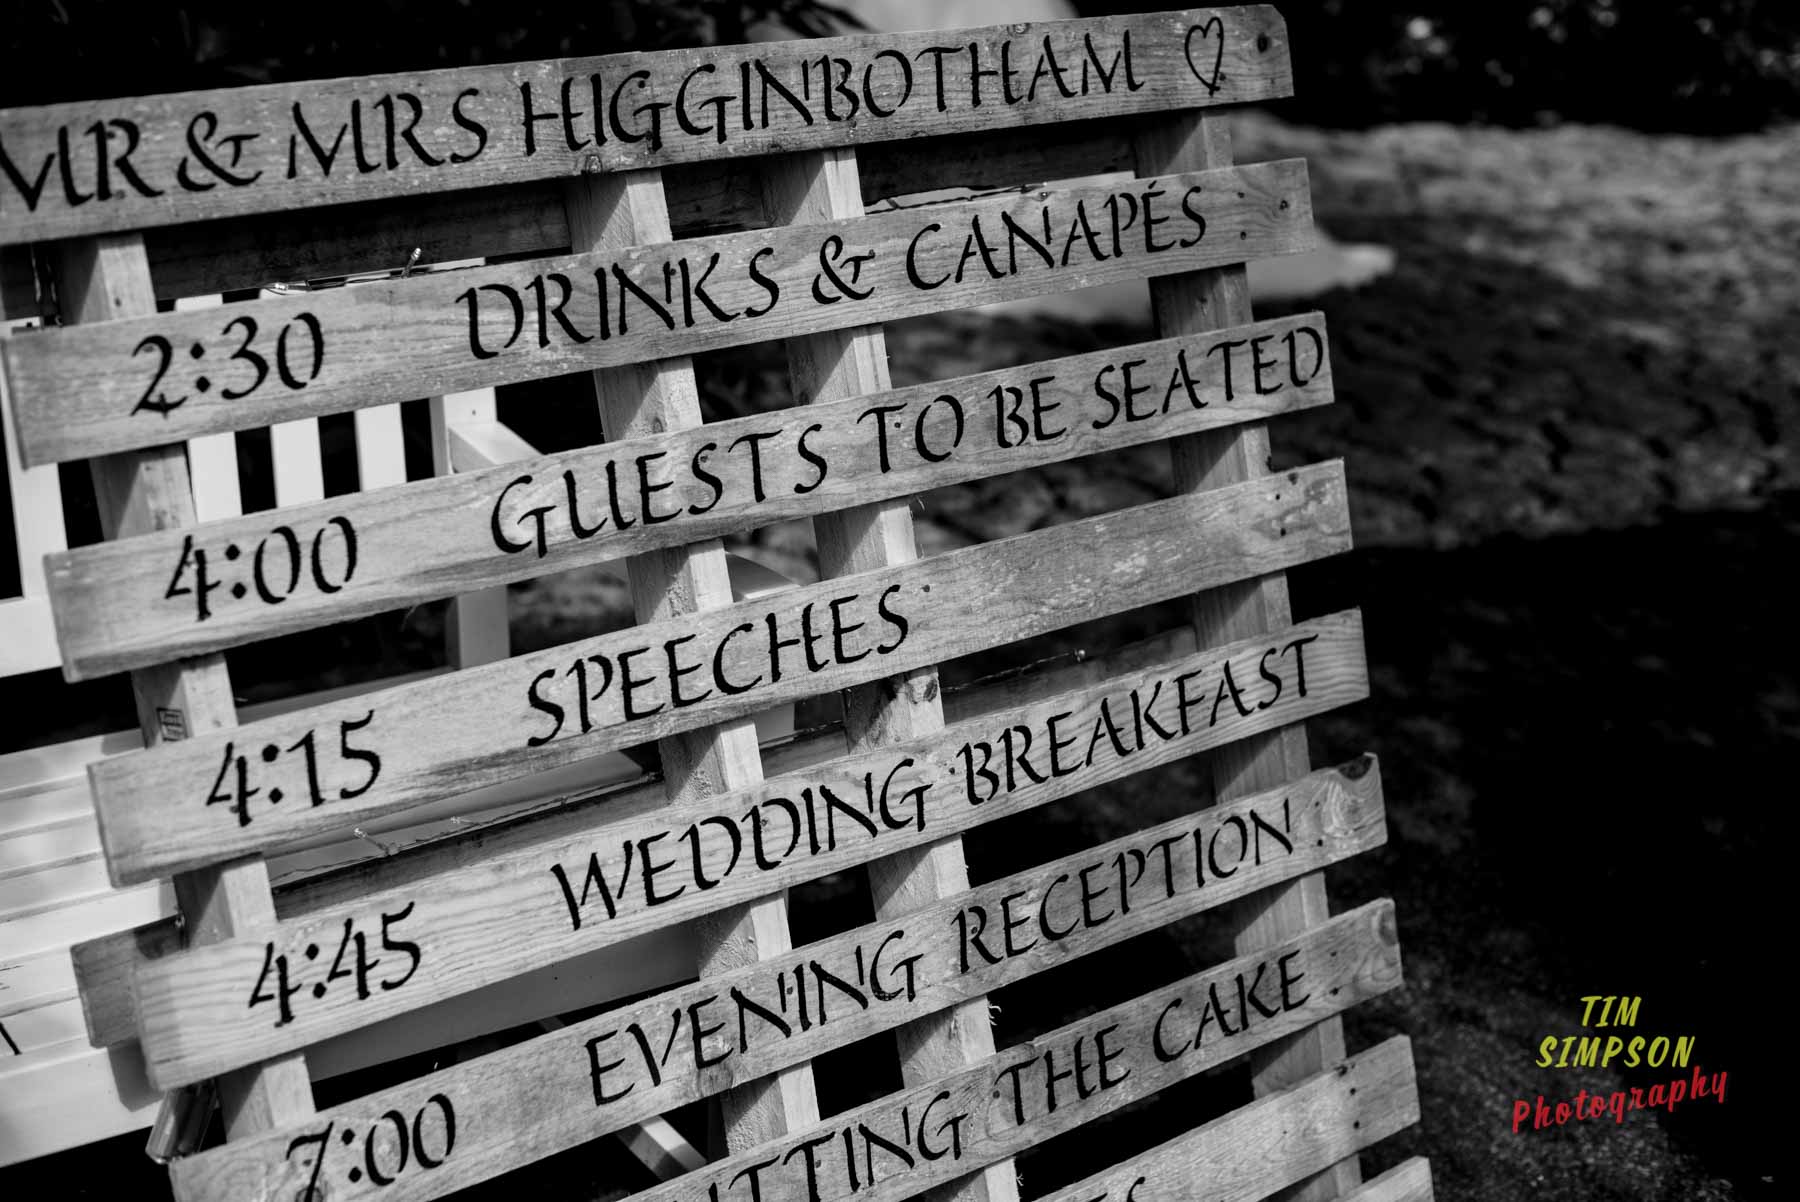 MR & MRS HIGGINBOTHAM ♡
2:30 DRINKS & CANAPÉS
4:00 GUESTS TO BE SEATED
4:15 SPEECHES
4:45 WEDDING BREAKFAST
7:00 EVENING RECEPTION
THE CAKE
TIM
SIMPSON
Photography